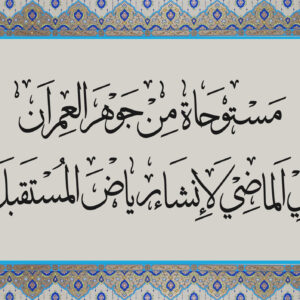 مَسْتوحَاة مِنْ جَوْهَر العِمرَان
الماضِي لَإِنشَاء رياضَ المُسْتَقبل